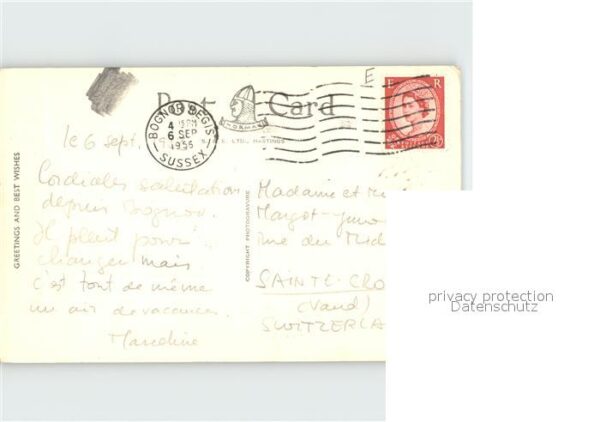 Post Card
E
E R
BOGNOR REGIS
6 SEP
1955
SUSSEX
NORMAN
HASTINGS
GREETINGS AND BEST WISHES
COPYRIGHT PHOTOGRAVURE
le 6 sept.
Cordiales salutations
depuis Bognor.
Il pleut pour
changer mais
c'est tout de même
un air de vacances.
Madame et
rue du
SAINTE-CRO
(Vaud)
SWITZERLA
privacy protection
Datenschutz